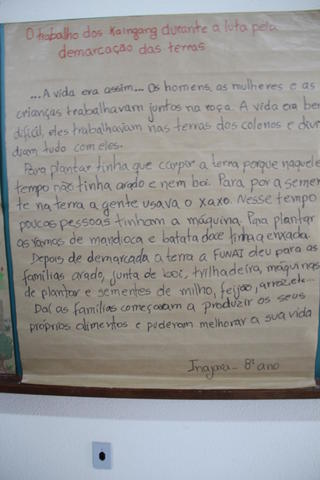 O trabalho dos Kaingang durante a luta pela
demarcação das terras
...A vida era assim... Os homens, as mulheres e as
crianças trabalhavam juntos na roça. A vida era bem
difícil, eles trabalhavam nas terras dos colonos e divi
diam tudo com eles.
Para plantar tinha que carpir a terra porque naquele
tempo não tinha arado e nem boi. Para por a semen
te na terra a gente usava o xaxo. Nesse tempo
poucas pessoas tinham a máquina. Para plantar
as ramas de mandioca e batata doce tinha a enxada.
Depois de demarcada a terra a FUNAI deu para as
famílias arado, junta de boi, trilhadeira, máquinas
de plantar e sementes de milho, feijão, arroz, etc...
Daí as famílias começaram a produzir os seus
próprios alimentos e puderam melhorar a sua vida
Inajara - 8º ano